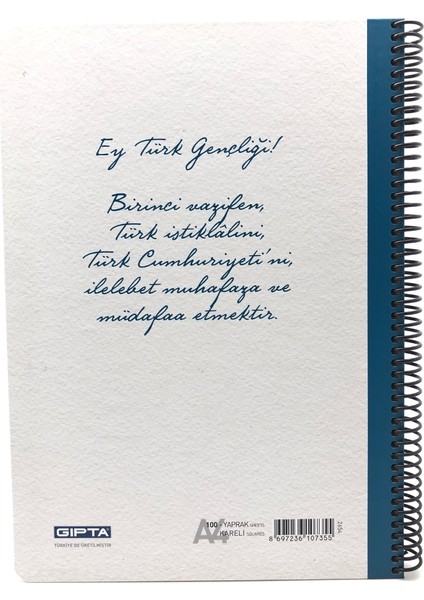 Ey Türk Gençliği!
Birinci vazifen,
Türk istiklâlini,
Türk Cumhuriyeti'ni,
ilelebet muhafaza ve
müdafaa etmektir.
GIPTA
TÜRKİYE'DE ÜRETİLMİŞTİR
A4
100 YAPRAK SHEETS
KARELİ SQUARES
8 697236 107355